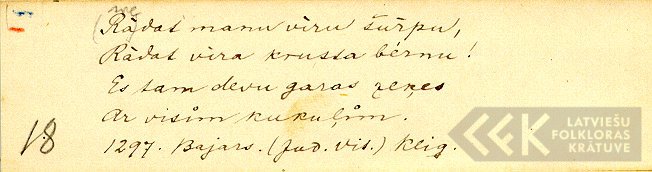 (Rādat manu vīru šurpu,
Rādat vīra krusta bērnu!
Es tam devu garas zeķes
Ar visim kukuļim.
18
1297. Bajars. (Jud. vis.) Klig.
LATVIEŠU
FOLKLORAS
KRĀTUVE